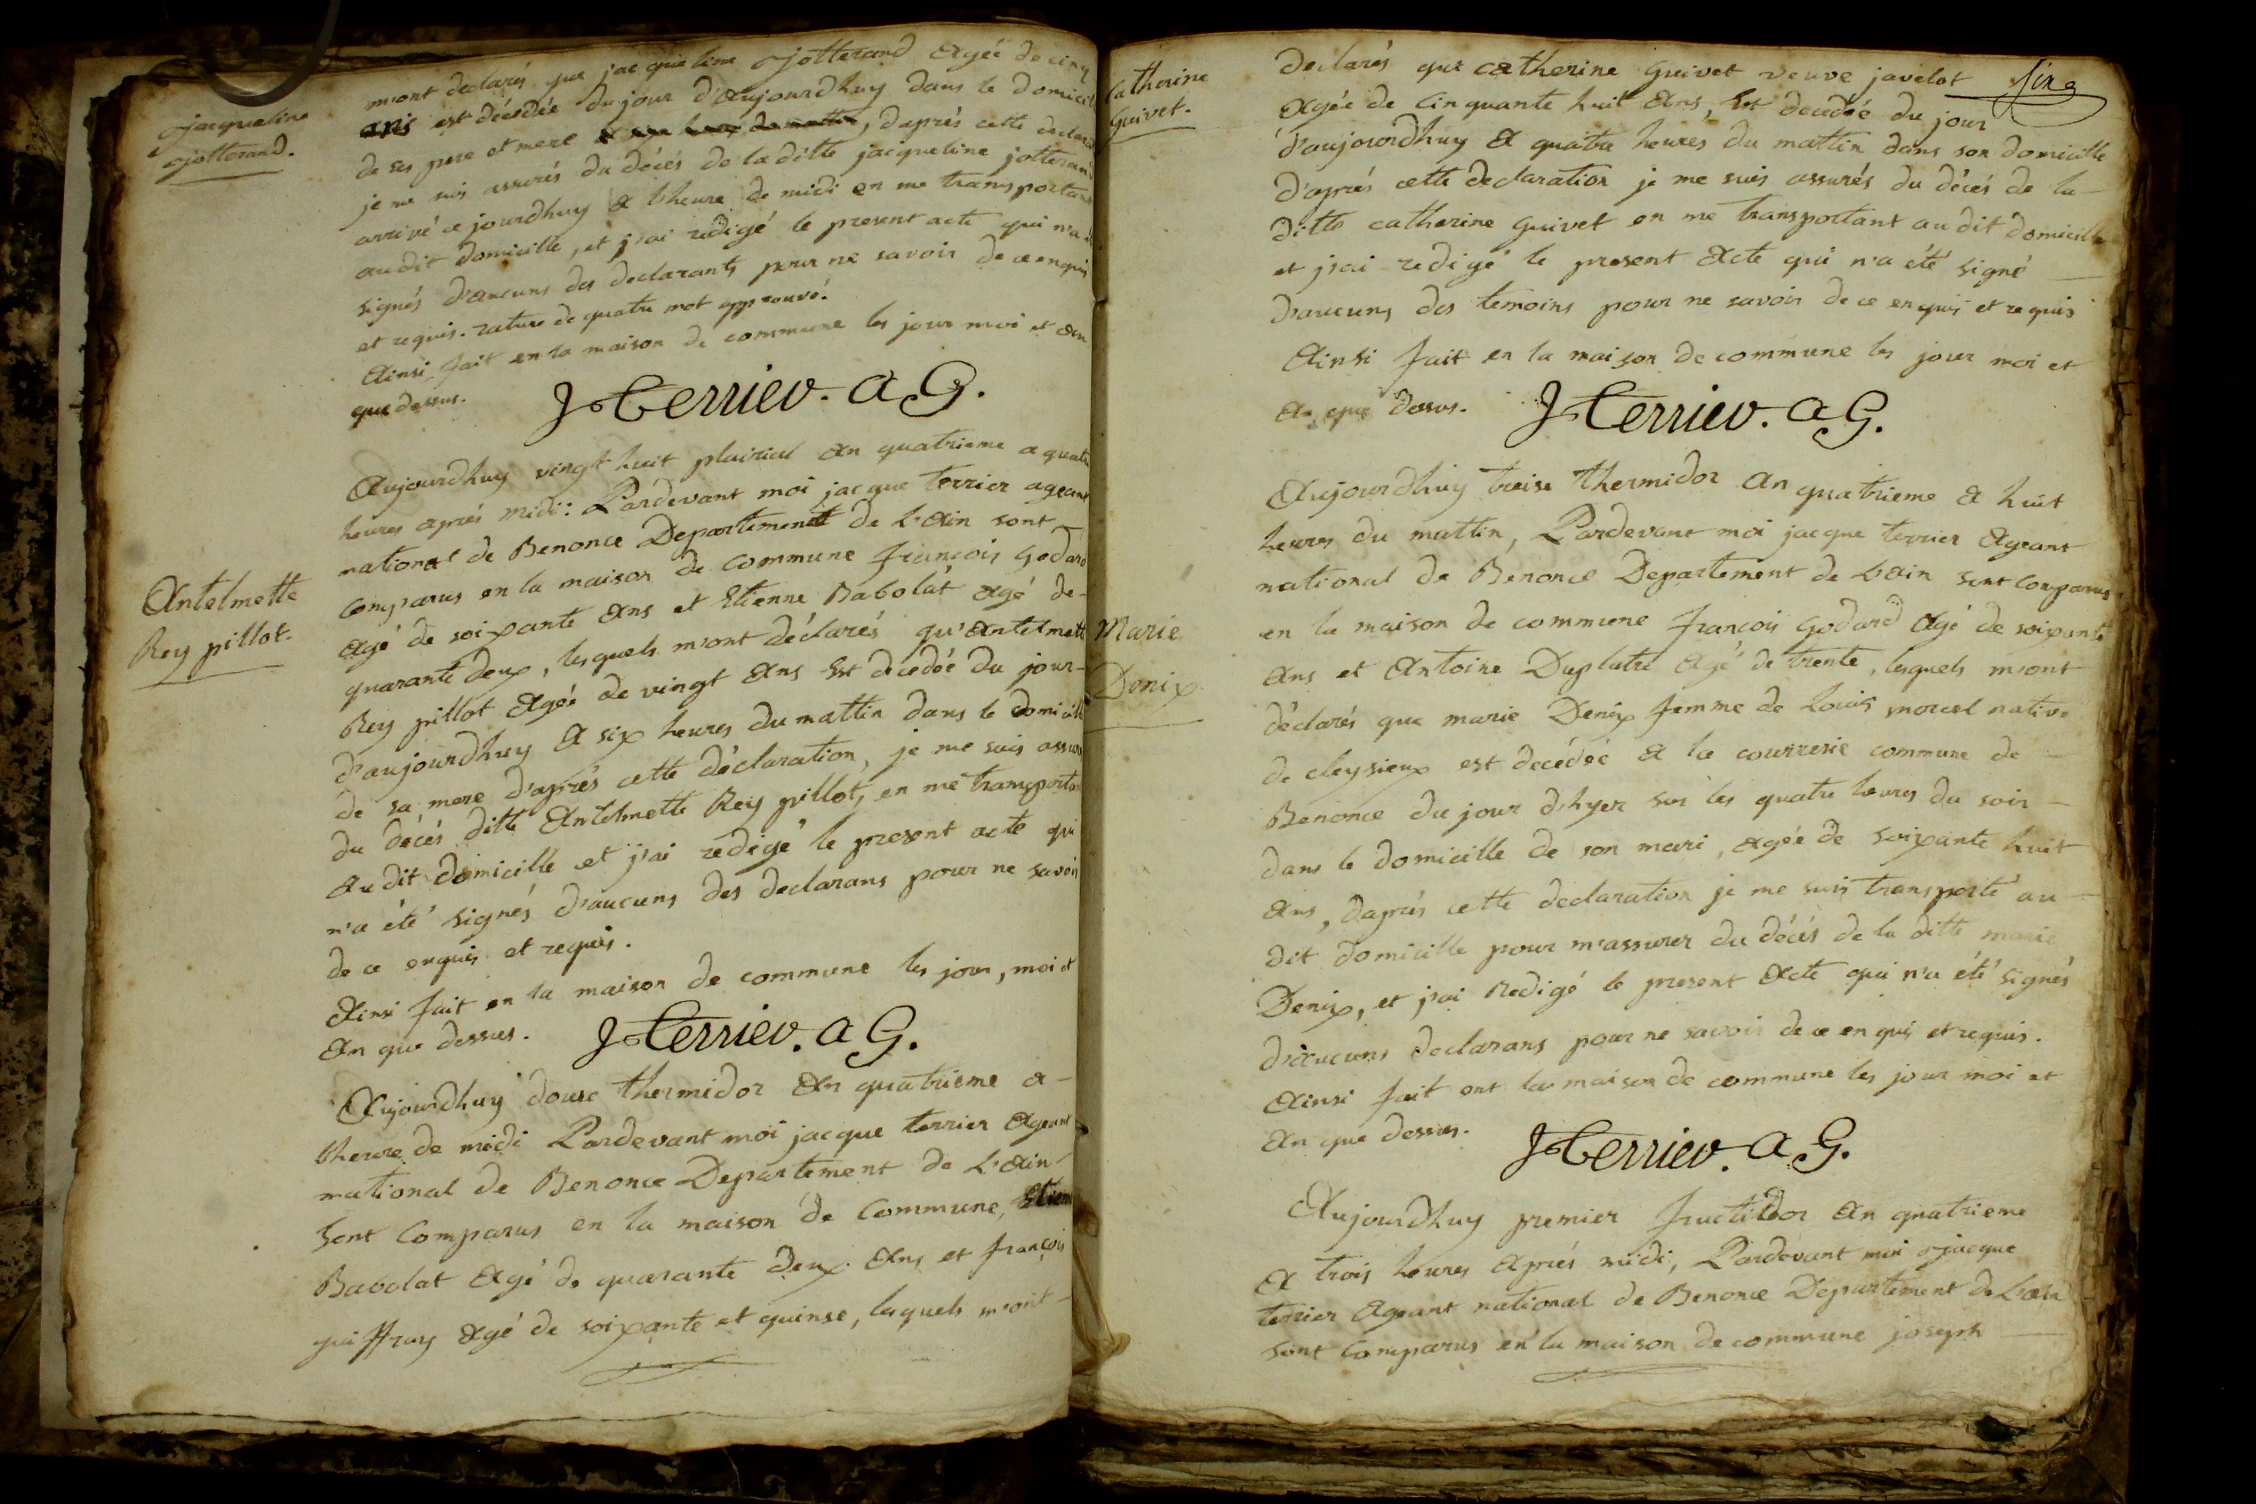 jacqueline
jotterand.
m'ont declarés que jacqueline jotterand agée de cinq
ans est décédée du jour d'aujourdhuy dans le domicil
de ses pere et mere, d'aprés cette declara
je me suis assurés du décés de la ditte jacqueline jotterand
arrivé ce jourdhuy a l'heure de midi en me transportant
audit domicille, et j'ai redigé le present acte qui n'a
signés d'aucuns des declarants pour ne savoir de ce enquis
et requis. rature de quatre mot approuvé.
Ainsi fait en la maison de commune les jour moi et an
que dessus.
J Terrier. a G.
Antelmette
Rey pillot.
Aujourdhuy vingt huit plairial an quatrieme a quatre
heures aprés midi: Pardevant moi jacque terrier ageant
national de Benonce Departement de L'ain sont
comparus en la maison de commune françois Godard
agé de soixante ans et Etienne Babolat agé de
quarante deux, lesquels m'ont déclarés qu'Antelmett
Rey pillot agée de vingt ans est décédée du jour
d'aujourdhuy a six heures du mattin dans le domicille
de sa mere d'aprés cette déclaration, je me suis assuré
du décés ditte Antelmette Rey pillot, en me transporta
au dit domicille et j'ai redigé le present acte qui
n'a été signés d'aucuns des declarans pour ne savoir
de ce enquis et requis.
Ainsi fait en la maison de commune les jour, moi et
an que dessus.
J Terrier. a G.
Aujourdhuy douse thermidor an quatrieme a
l'heure de midi Pardevant moi jacque terrier ageant
national de Benonce Departement de L'ain
sont comparus en la maison de commune, Etien
Babolat agé de quarante deux ans et françois
guiffray agé de soixante et quinse, lesquels m'ont
Catherine
Guivet.
declarés que catherine Guivet veuve javelot
agée de cinquante huit ans, est decedée du jour
d'aujourdhuy a quatre heures du mattin dans son domicille
d'aprés cette declaration je me suis assurés du décés de la
ditte catherine Guivet en me transportant au dit domicille
et j'ai redigé le present acte qui n'a été signé
d'aucuns des temoins pour ne savoir de ce enquis et requis
Ainsi fait en la maison de commune les jour moi et
an que desus.
J Terrier. a G.
Marie
Denix
Aujourdhuy treise thermidor an quatrieme a huit
heures du mattin, Pardevant moi jacque terrier ageant
national de Benonce Departement de L'ain sont comparus
en la maison de commune françois Godard agé de soixante
ans et Antoine Duplatre agé de trente, lesquels m'ont
déclarés que marie Denix femme de Louis morcel native
de cleysieux est decédée a la courrerie commune de
Benonce du jour d'hyer sur les quatre heures du soir
dans le domicille de son mari, agée de soixante huit
ans, d'aprés cette declaration je me suis transporté au
dit domicille pour m'assurer du décés de la ditte marie
Denix, et j'ai Redigé le present acte qui n'a été signés
d'aucuns declarans pour ne savoir de ce enquis et requis.
Ainsi fait ent la maison de commune les jour moi et
an que dessus.
J Terrier. a G.
Aujourdhuy premier fructidor an quatrieme
a trois heures aprés midi, Pardevant moi jacque
terrier ageant national de Benonce Departement de L'ain
sont comparus en la maison de commune joseph